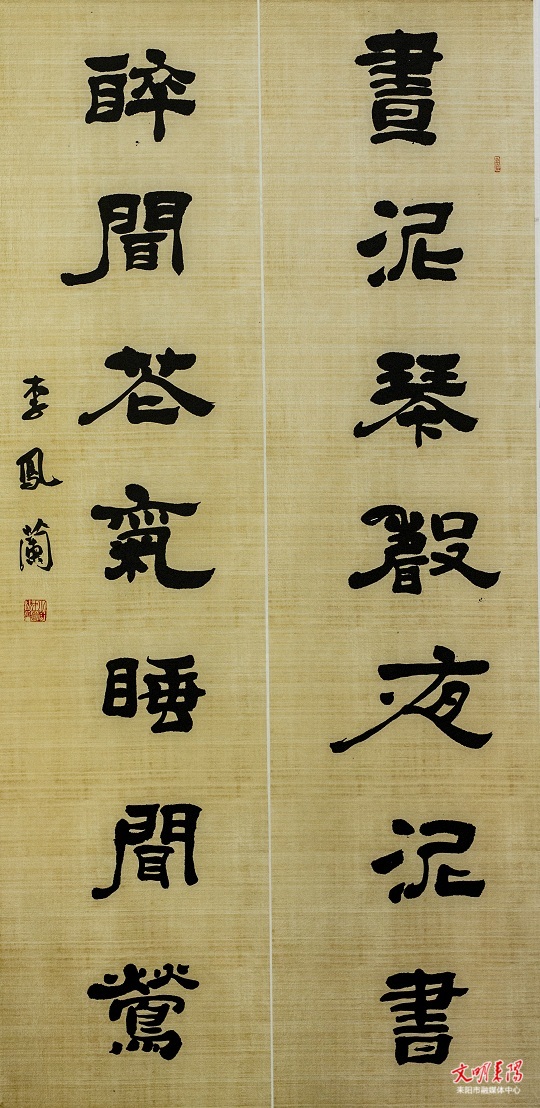 晝泥琴聲夜泥書
醉聞花氣睡聞鶯
李鳳蘭
文明耒陽
耒阳市融媒体中心